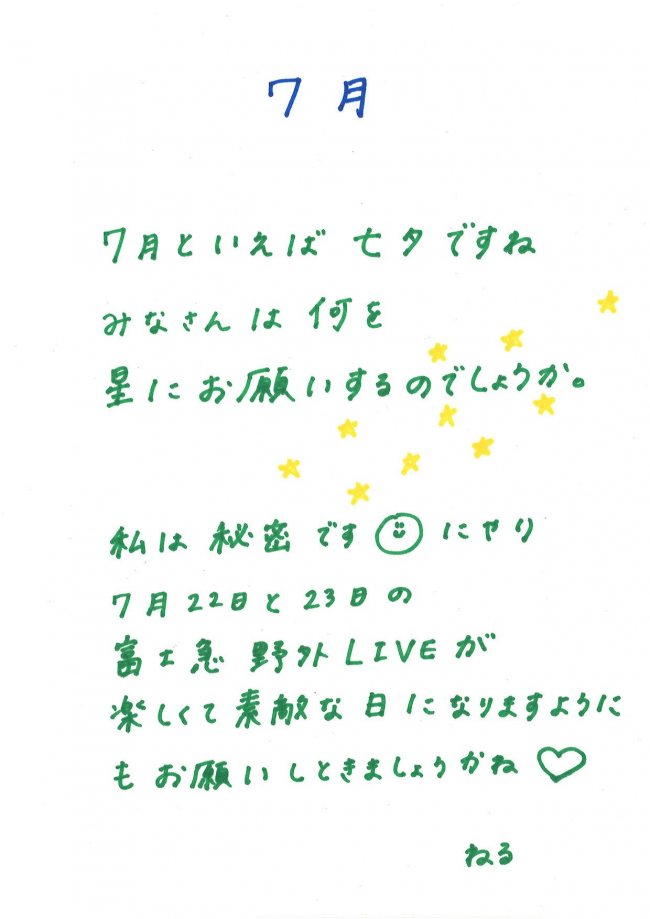 7月
7月といえば 七夕ですね
みなさんは 何を
星にお願いするのでしょうか。
私は 秘密です にやり
7月22日と23日の
富士急 野外LIVEが
楽しくて素敵な日になりますように
もお願いしときましょうかね
ねる